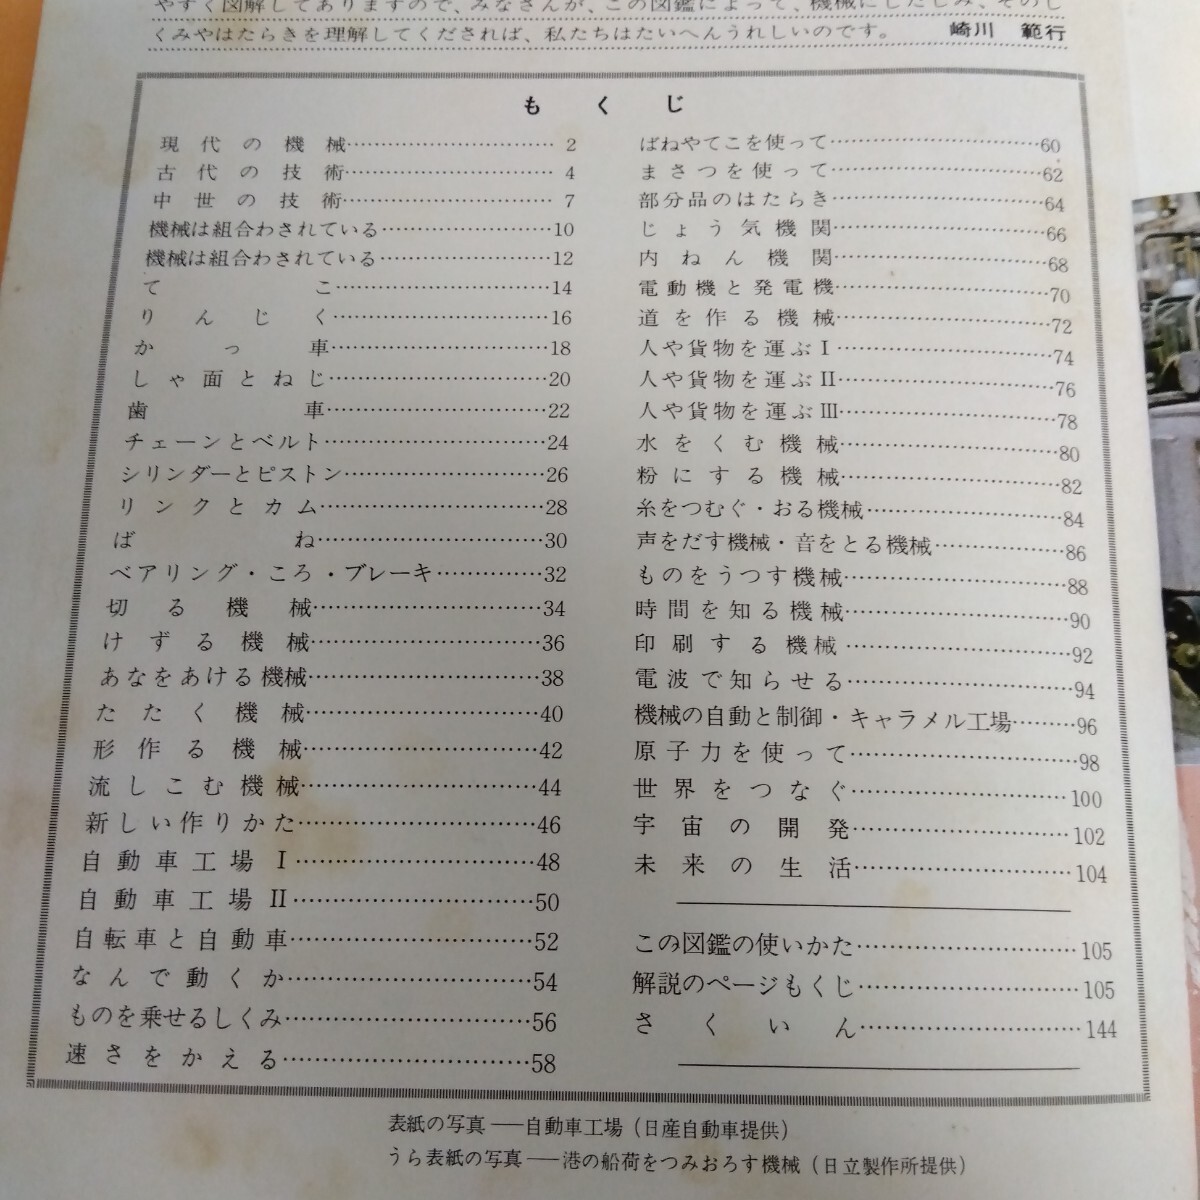 やすく図解してありますので、みなさんが、この図鑑によって、機械にしたしみ、そのし
くみやはたらきを理解してくだされば、私たちはたいへんうれしいのです。 崎川 範行
もくじ
現代の機械…………2
古代の技術…………4
中世の技術…………7
機械は組合わされている…………10
機械は組合わされている…………12
てこ…………14
りんじく…………16
かっ車…………18
しゃ面とねじ…………20
歯車…………22
チェーンとベルト…………24
シリンダーとピストン…………26
リンクとカム…………28
ばね…………30
ベアリング・ころ・ブレーキ…………32
切る機械…………34
けずる機械…………36
あなをあける機械…………38
たたく機械…………40
形作る機械…………42
流しこむ機械…………44
新しい作りかた…………46
自動車工場Ⅰ…………48
自動車工場Ⅱ…………50
自転車と自動車…………52
なんで動くか…………54
ものを乗せるしくみ…………56
速さをかえる…………58
ばねやてこを使って…………60
まさつを使って…………62
部分品のはたらき…………64
じょう気機関…………66
内ねん機関…………68
電動機と発電機…………70
道を作る機械…………72
人や貨物を運ぶⅠ…………74
人や貨物を運ぶⅡ…………76
人や貨物を運ぶⅢ…………78
水をくむ機械…………80
粉にする機械…………82
糸をつむぐ・おる機械…………84
声をだす機械・音をとる機械…………86
ものをうつす機械…………88
時間を知る機械…………90
印刷する機械…………92
電波で知らせる…………94
機械の自動と制御・キャラメル工場…………96
原子力を使って…………98
世界をつなぐ…………100
宇宙の開発…………102
未来の生活…………104
この図鑑の使いかた…………105
解説のページもくじ…………105
さくいん…………144
表紙の写真──自動車工場（日産自動車提供）
うら表紙の写真──港の船荷をつみおろす機械（日立製作所提供）